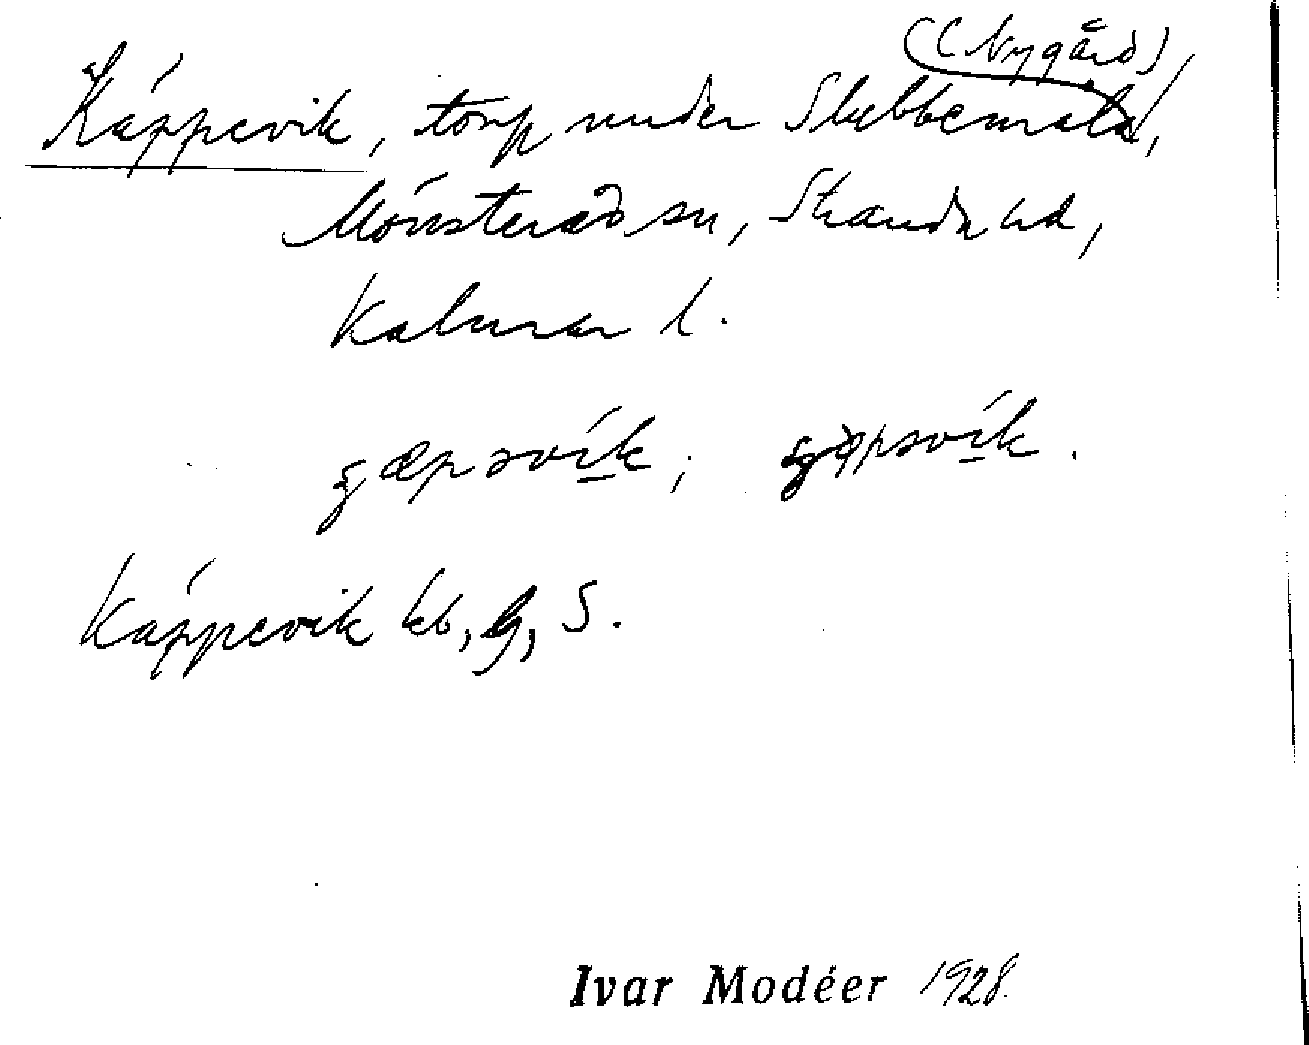 (Nygård)
Käppevik, torp under Stubbemåla,
Mönsterås sn, Stranda hd,
Kalmar l.
Käppevik kb, G, S.
Ivar Modéer 1928.